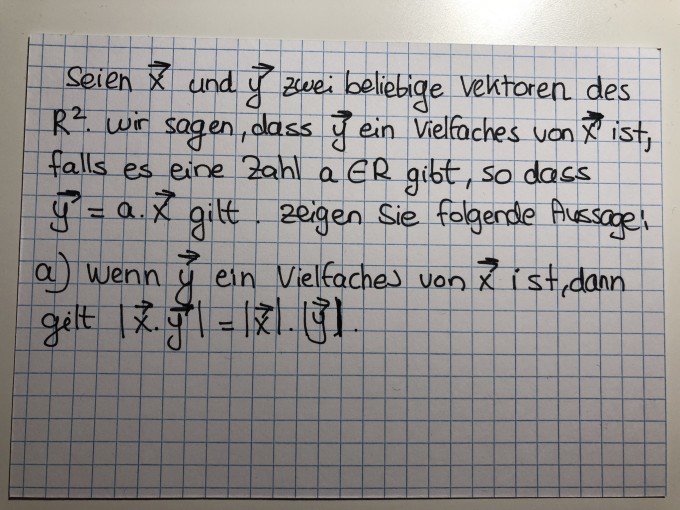 Seien x⃗ und y⃗ zwei beliebige Vektoren des
R². Wir sagen, dass y⃗ ein Vielfaches von x⃗ ist,
falls es eine Zahl a ∈ R gibt, so dass
y⃗ = a . x⃗ gilt . zeigen Sie folgende Aussage:
a) Wenn y⃗ ein Vielfaches von x⃗ ist, dann
gilt |x⃗ . y⃗| = |x⃗| . |y⃗| .